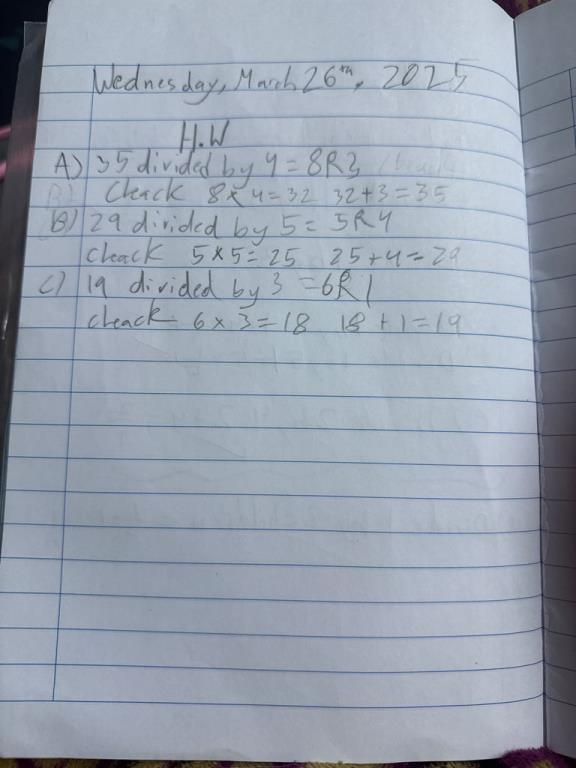 Wednesday, March 26th, 2025
H.W
A) 35 divided by 4 = 8R3
Cheack 8 x 4 = 32 32+3 = 35
B) 29 divided by 5 = 5R4
cheack 5 x 5 = 25 25 + 4 = 29
C) 19 divided by 3 = 6R1
cheack 6 x 3 = 18 18 + 1 = 19